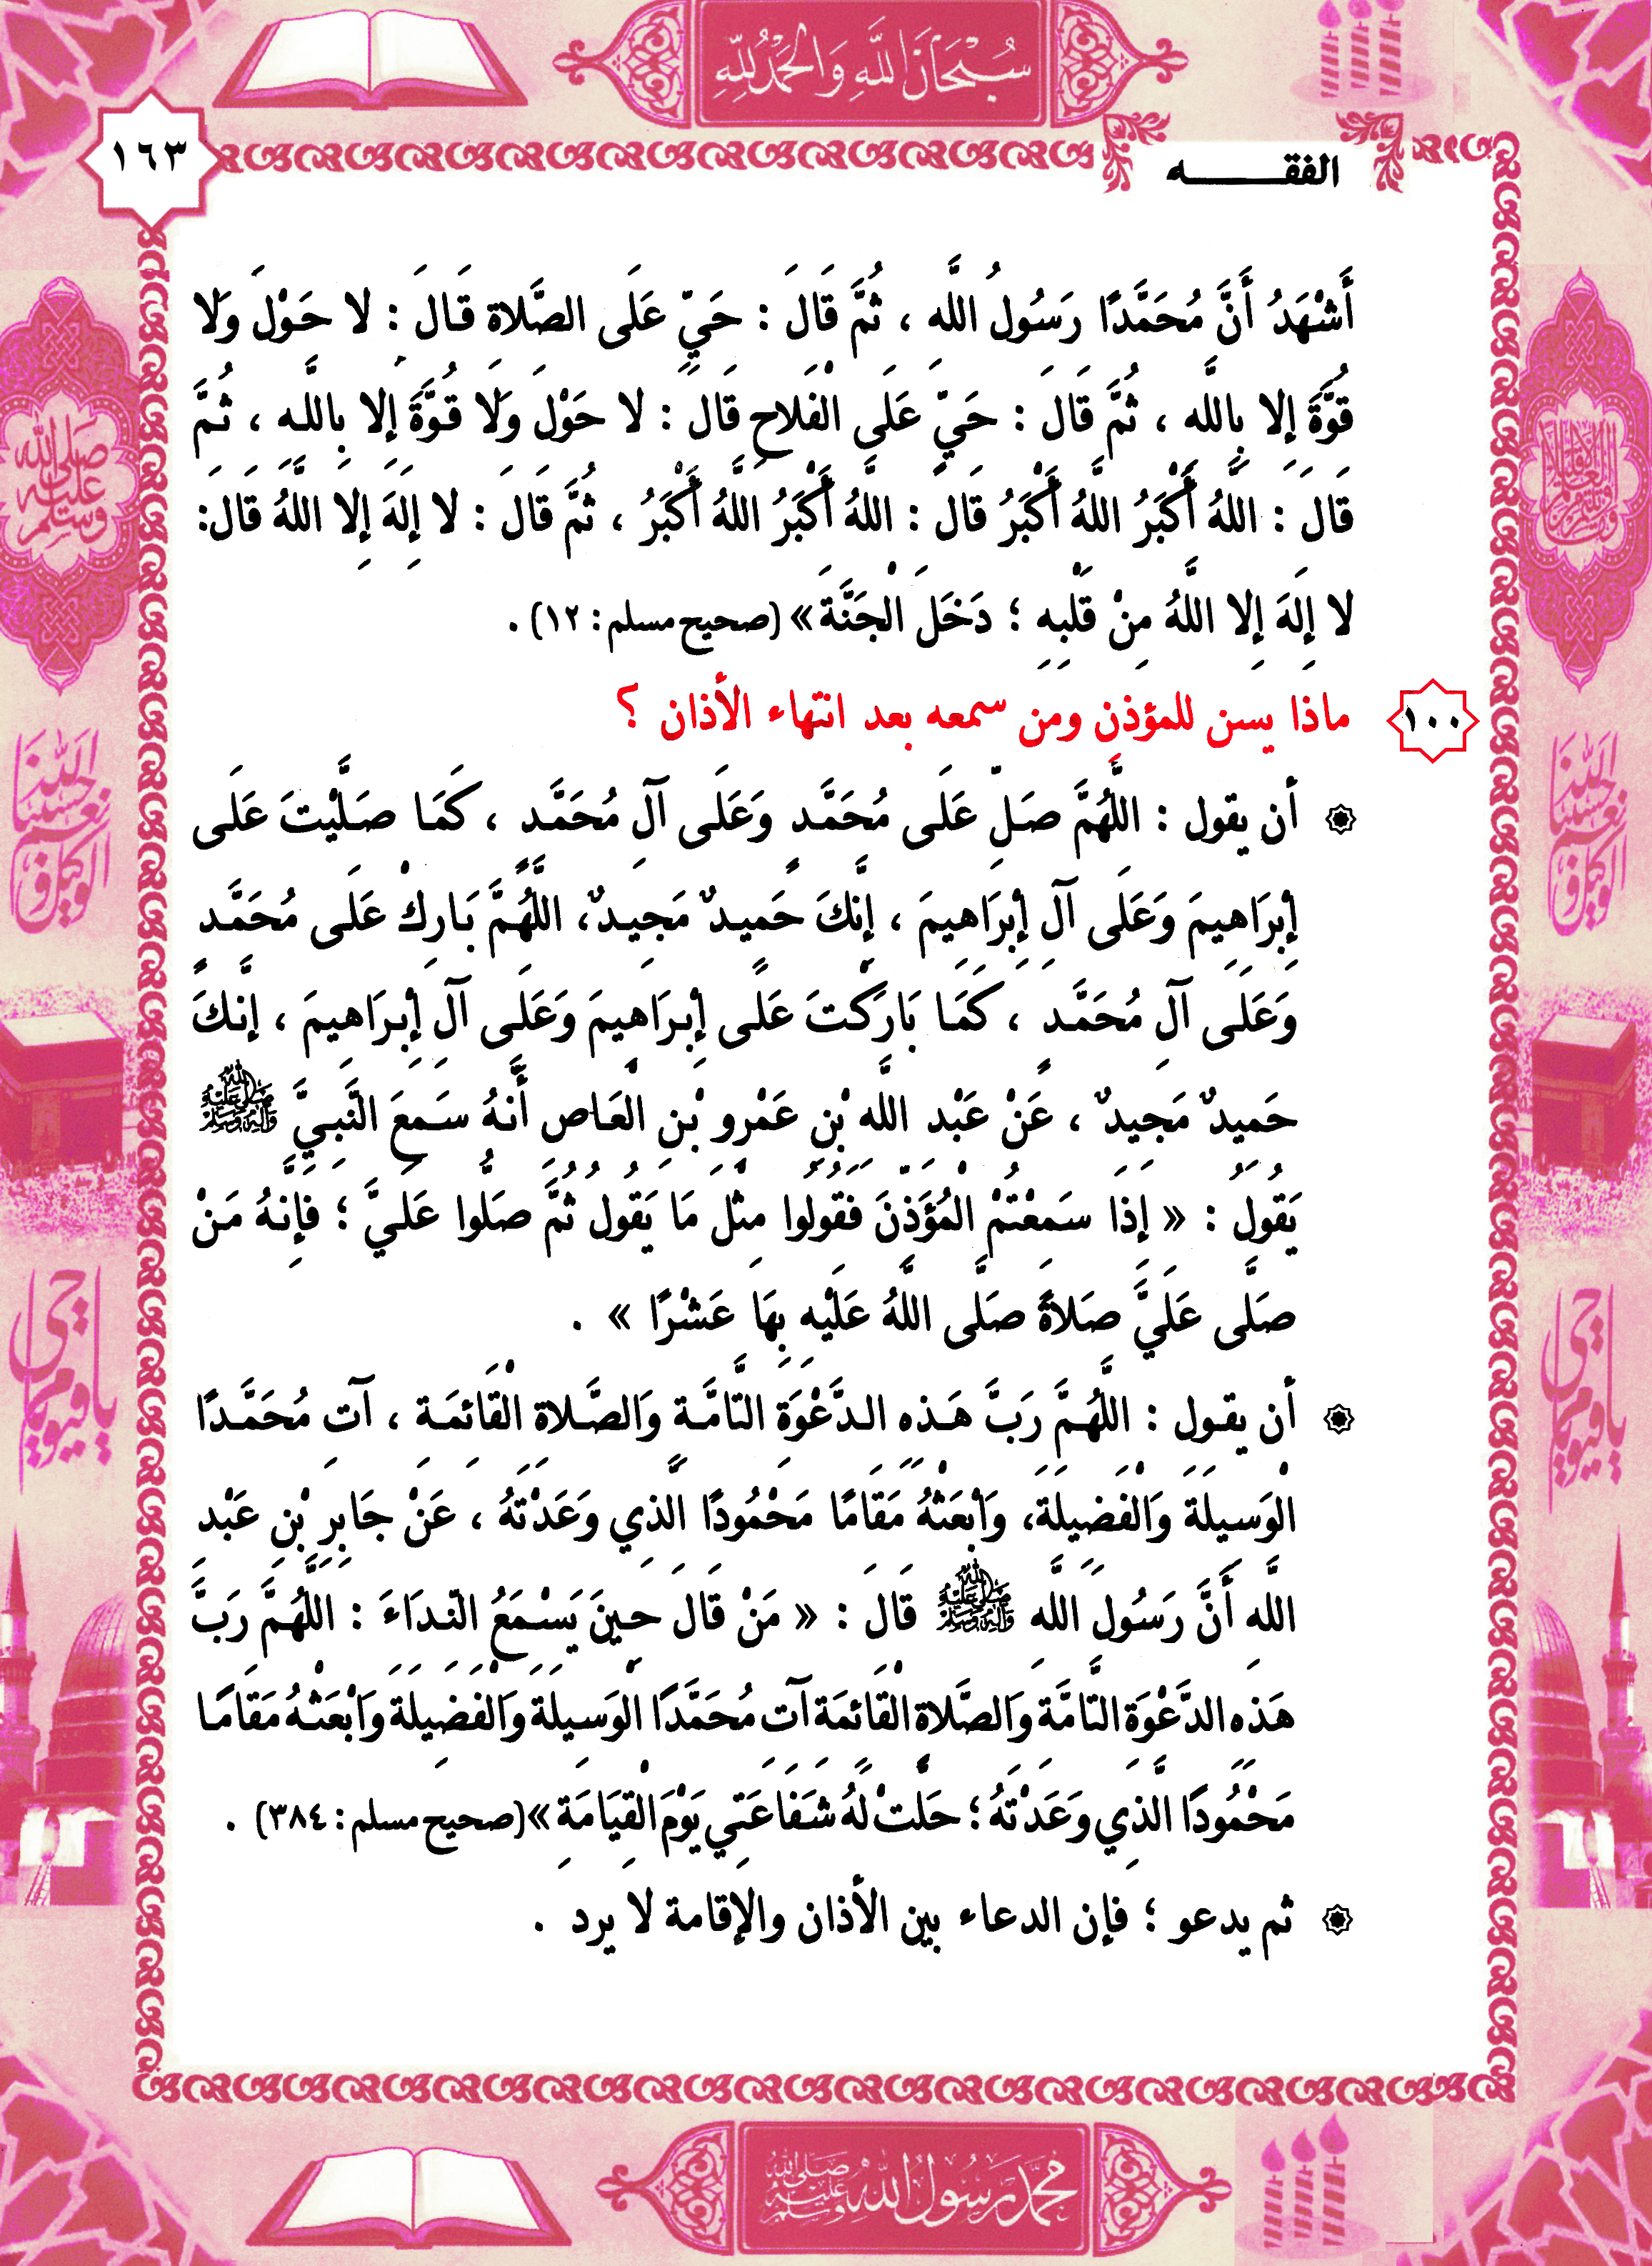 سُبْحَانَ اللَّهِ وَالْحَمْدُ لِلَّهِ
١٦٣
الفقـــــه
أَشْهَدُ أَنَّ مُحَمَّدًا رَسُولُ اللَّهِ ، ثُمَّ قَالَ : حَيَّ عَلَى الصَّلَاةِ قَالَ : لا حَوْلَ وَلا
قُوَّةَ إِلا بِاللَّهِ ، ثُمَّ قَالَ : حَيَّ عَلَى الْفَلاحِ قَالَ : لا حَوْلَ وَلا قُوَّةَ إِلا بِاللَّهِ ، ثُمَّ
قَالَ : اللَّهُ أَكْبَرُ اللَّهُ أَكْبَرُ قَالَ : اللَّهُ أَكْبَرُ اللَّهُ أَكْبَرُ ، ثُمَّ قَالَ : لا إِلَهَ إِلا اللَّهُ قَالَ:
لا إِلَهَ إِلا اللَّهُ مِنْ قَلْبِهِ ؛ دَخَلَ الْجَنَّةَ » (صحيح مسلم : ١٢) .
١٠٠ ماذا يسن للمؤذن ومن سمعه بعد انتهاء الأذان ؟
أن يقول : اللَّهُمَّ صَلِّ عَلَى مُحَمَّدٍ وَعَلَى آلِ مُحَمَّدٍ ، كَمَا صَلَّيْتَ عَلَى
إِبْرَاهِيمَ وَعَلَى آلِ إِبْرَاهِيمَ ، إِنَّكَ حَمِيدٌ مَجِيدٌ، اللَّهُمَّ بَارِكْ عَلَى مُحَمَّدٍ
وَعَلَى آلِ مُحَمَّدٍ ، كَمَا بَارَكْتَ عَلَى إِبْرَاهِيمَ وَعَلَى آلِ إِبْرَاهِيمَ ، إِنَّكَ
حَمِيدٌ مَجِيدٌ ، عَنْ عَبْدِ اللَّهِ بْنِ عَمْرِو بْنِ الْعَاصِ أَنَّهُ سَمِعَ النَّبِيَّ ﷺ
يَقُولُ : « إِذَا سَمِعْتُمُ الْمُؤَذِّنَ فَقُولُوا مِثْلَ مَا يَقُولُ ثُمَّ صَلُّوا عَلَيَّ ؛ فَإِنَّهُ مَنْ
صَلَّى عَلَيَّ صَلاةً صَلَّى اللَّهُ عَلَيْهِ بِهَا عَشْرًا » .
أن يقول : اللَّهُمَّ رَبَّ هَذِهِ الدَّعْوَةِ التَّامَّةِ وَالصَّلاةِ الْقَائِمَةِ ، آتِ مُحَمَّدًا
الْوَسِيلَةَ وَالْفَضِيلَةَ، وَابْعَثْهُ مَقَامًا مَحْمُودًا الَّذِي وَعَدْتَهُ ، عَنْ جَابِرِ بْنِ عَبْدِ
اللَّهِ أَنَّ رَسُولَ اللَّهِ ﷺ قَالَ : « مَنْ قَالَ حِينَ يَسْمَعُ النِّدَاءَ : اللَّهُمَّ رَبَّ
هَذِهِ الدَّعْوَةِ التَّامَّةِ وَالصَّلاةِ الْقَائِمَةِ آتِ مُحَمَّدًا الْوَسِيلَةَ وَالْفَضِيلَةَ وَابْعَثْهُ مَقَامًا
مَحْمُودًا الَّذِي وَعَدْتَهُ ؛ حَلَّتْ لَهُ شَفَاعَتِي يَوْمَ الْقِيَامَةِ »(صحيح مسلم : ٣٨٤) .
ثم يدعو ؛ فإن الدعاء بين الأذان والإقامة لا يرد .
صلى الله عليه وسلم
حسبنا الله ونعم الوكيل
يا حي يا قيوم
حسبنا الله ونعم الوكيل
يا حي يا قيوم
محمد رسول الله صلى الله عليه وسلم